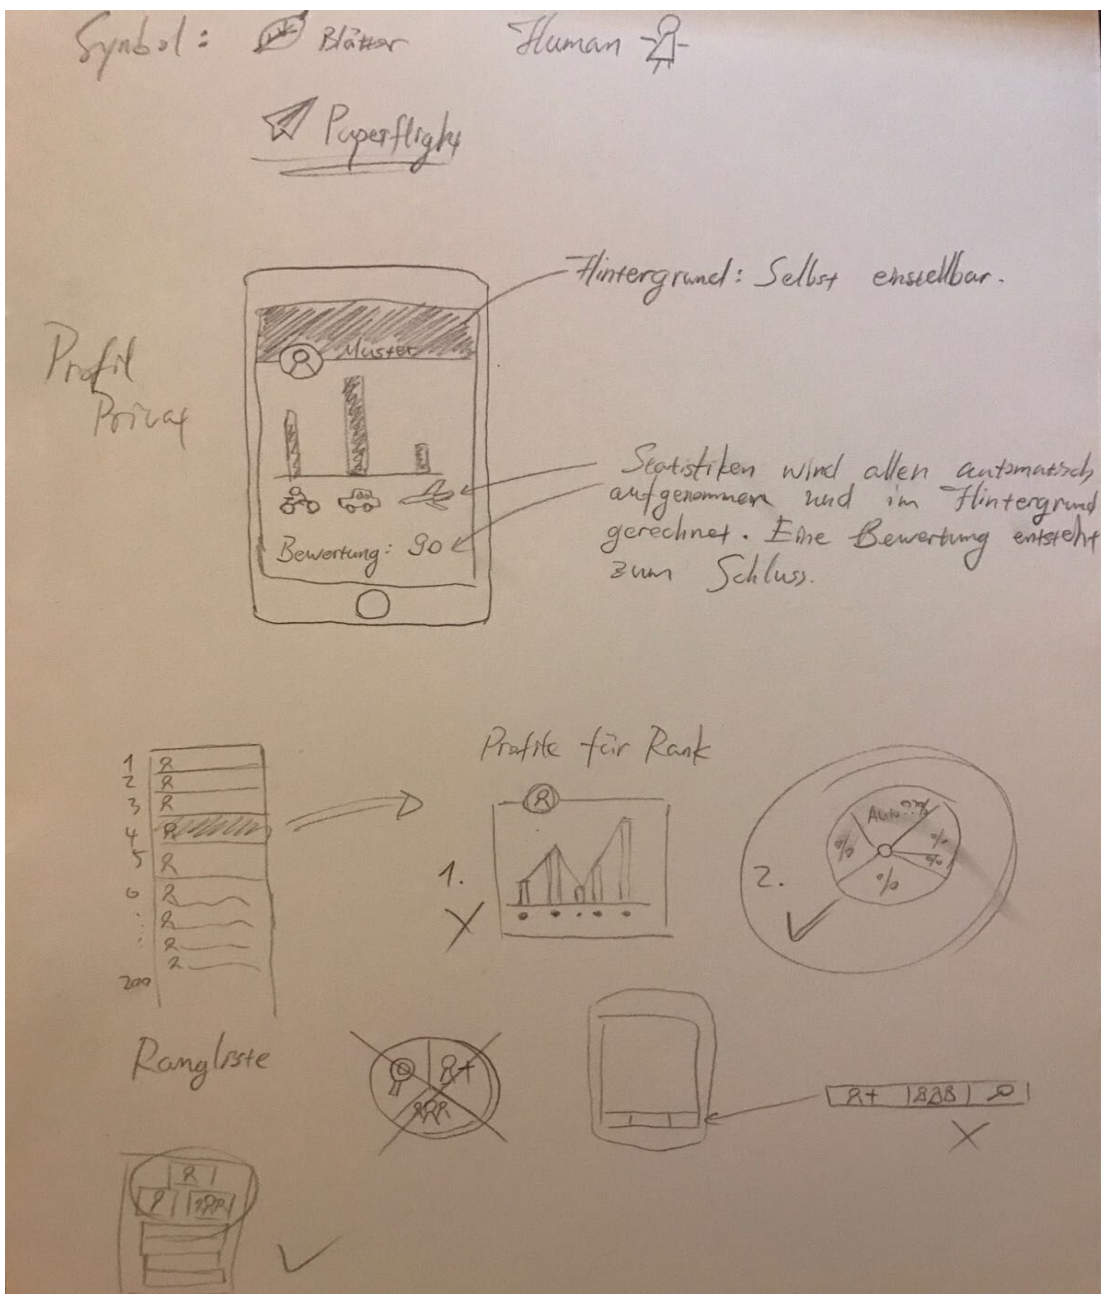 Symbol: Blätter Human
Paperflight
Hintergrund: Selbst einstellbar.
Profil
Privat
Muster
Statistiken wird allen automatisch
aufgenommen und im Hintergrund
gerechnet. Eine Bewertung entsteht
zum Schluss.
Bewertung: 90
Profile für Rank
1
2
3
4
5
6
200
1.
2.
Auto %
%
%
%
%
Rangliste